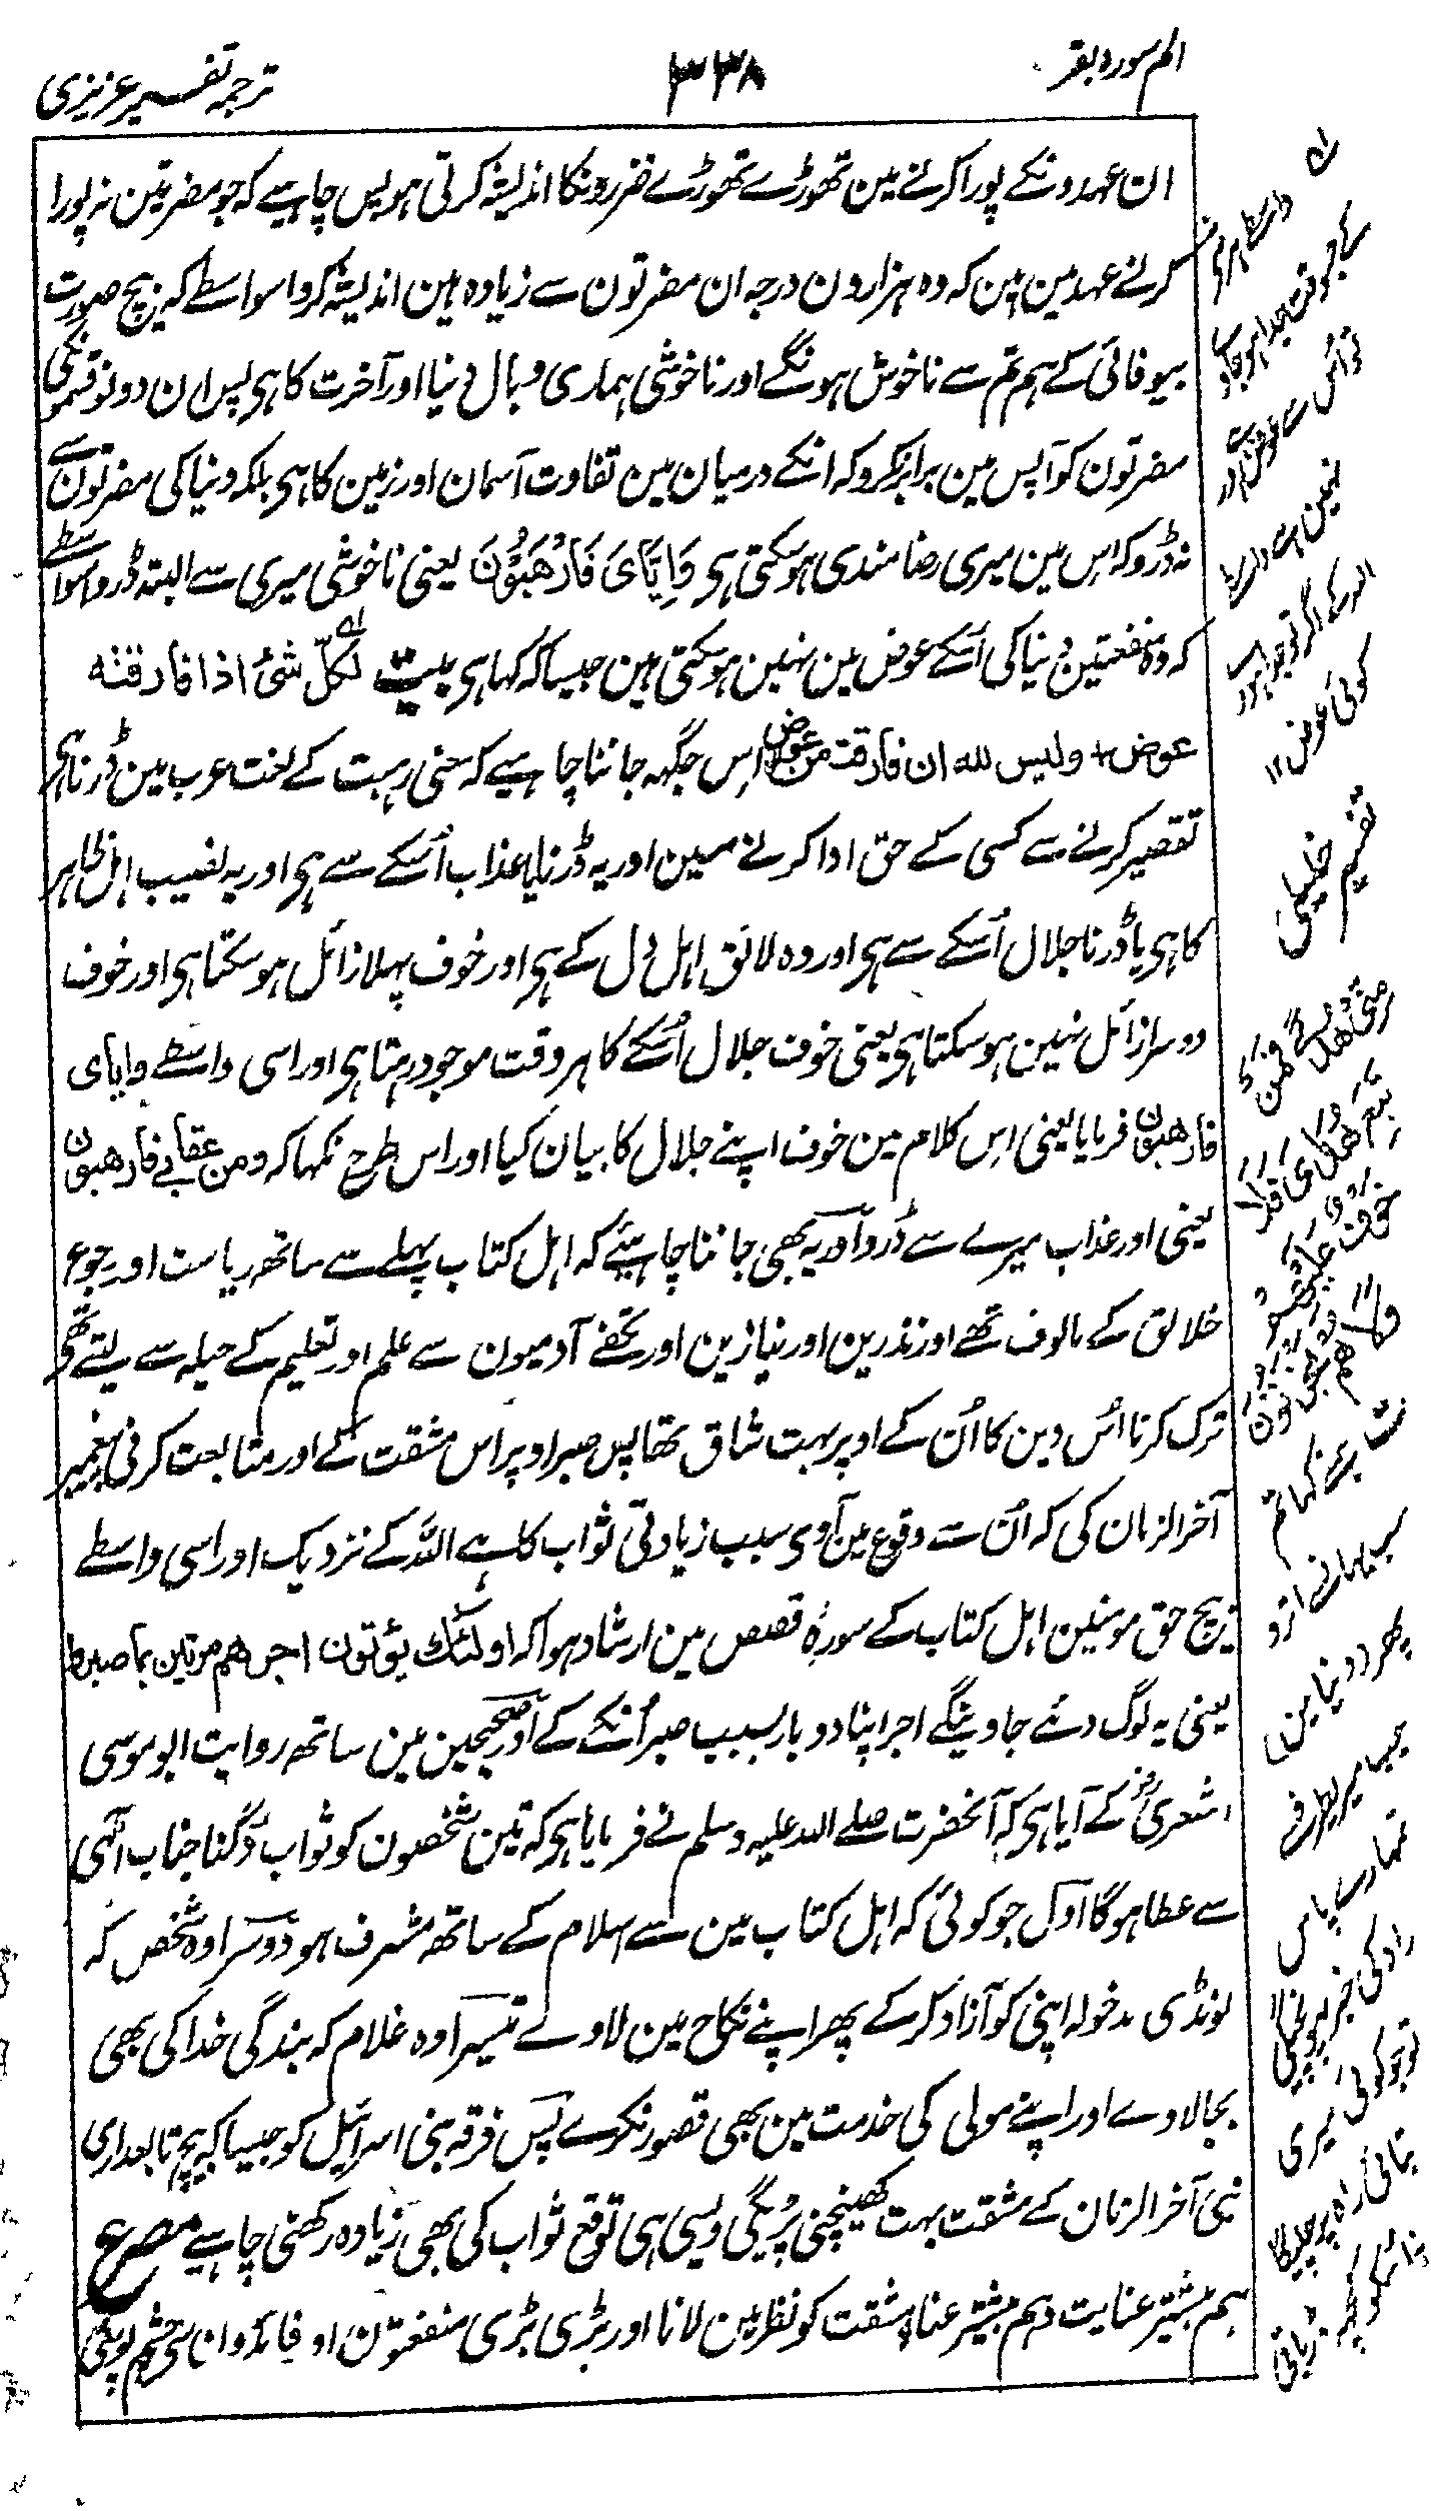 الم سورہ بقر
۳۳۸
ترجمہ تفسیر عزیزی
ان عہدونکے پورا کرنے مین تھوڑے تھوڑے ضررونکا اندیشہ کرتی ہو پس چاہیے کہ جو مضرتین نہ پورا
کرنے عہد مین ہین کہ وہ ہزارون درجہ ان مضرتون سے زیادہ ہین اندیشہ کرو اسواسطے کہ بیچ صورت
بیوفائی کے ہم تم سے ناخوش ہونگے اور ناخوشی ہماری وبال دنیا اور آخرت کا ہی پس ان دونو قسمونکی
مضرتون کو آپس مین برابر نکرو کہ انکے درمیان مین تفاوت آسمان اور زمین کا ہی بلکہ دنیا کی مضرتون سے
نہ ڈرو کہ اس مین میری رضامندی ہوسکتی ہی وَاِیَّایَ فَارْهَبُوْنَ یعنی ناخوشی میری سے البتہ ڈرو اسواسطے
کہ وہ منفعتین دنیا کی اُسکے عوض مین نہین ہوسکتی ہین جیسا کہ کہا ہی بیت لکلّ شئ اذا فارقته
عوض + ولیس لله ان فارقت من عوض اِس جگہہ جاننا چاہیے کہ معنی رہبت کے لغت عرب مین ڈرنا ہی
تقصیر کرنے سے کسی کے حق ادا کرنے مین اور یہ ڈرنا یا عذاب اُسکے سے ہی اور یہ نصیب اہل ظاہر
کا ہی یا ڈرنا جلال اُسکے سے ہی اور وہ لائق اہل دل کے ہی اور خوف پہلا زائل ہوسکتا ہی اور خوف
دوسرا زائل نہین ہوسکتا ہی یعنی خوف جلال اُسکے کا ہر وقت موجود رہتا ہی اور اسی واسطے وایای
فارهبون فرمایا یعنی اِس کلام مین خوف اپنے جلال کا بیان کیا اور اس طرح نکہا کہ ومن عقابی فارهبون
یعنی اور عذاب میرے سے ڈرو اور یہ بھی جاننا چاہیئے کہ اہل کتاب پہلے سے ساتھ ریاست اور رجوع
خلائق کے مالوف تھے اور نذرین اور نیازین اور تحفے آدمیون سے علم اور تعلیم کے حیلہ سے لیتے تھی
ترک کرنا اُس دین کا اُن کے اوپر بہت شاق تھا پس صبر اوپر اُس مشقت کے اور متابعت کرنی پیغمبر
آخر الزمان کی کہ اُن سے وقوع مین آوی سبب زیادتی ثواب کا ہے اللہ کے نزدیک اور اسی واسطے
بیچ حق مومنین اہل کتاب کے سورۂ قصص مین ارشاد ہوا کہ اولئك یؤتون اجرهم مرتین بما صبروا
یعنی یہ لوگ دیئے جاوینگے اجر اپنا دوبار بسبب صبر اُنکے کے اور صحیحین مین ساتھ روایت ابو موسی
اشعریؓ کے آیا ہی کہ آنحضرت صلے اللہ علیہ وسلم نے فرمایا ہی کہ تین شخصون کو ثواب دُگنا جناب آلہی
سے عطا ہوگا اول جو کوئی کہ اہل کتاب مین سے اسلام کے ساتھ مشرف ہو دوسرا وہ شخص کہ
لونڈی مدخولہ اپنی کو آزاد کرکے پھر اپنے نکاح مین لاوے تیسرا وہ غلام کہ بندگی خدا کی بھی
بجالاوے اور اپنے مولی کی خدمت مین بھی قصور نکرے پس فرقہ بنی اسرائیل کو جیسا کہ بیچ تابعداری
نبی آخر الزمان کے مشقت بہت کھینچنی پڑیگی ویسی ہی توقع ثواب کی بھی زیادہ رکھنی چاہیے مصرع
ہم بیشتر عنایت و ہم بیشتر عنا مشقت کو نظر مین لانا اور بڑی بڑی منفعتون اور فائدون سی چشم پوشی
نہین ہے
کوئی عوض ۱۲